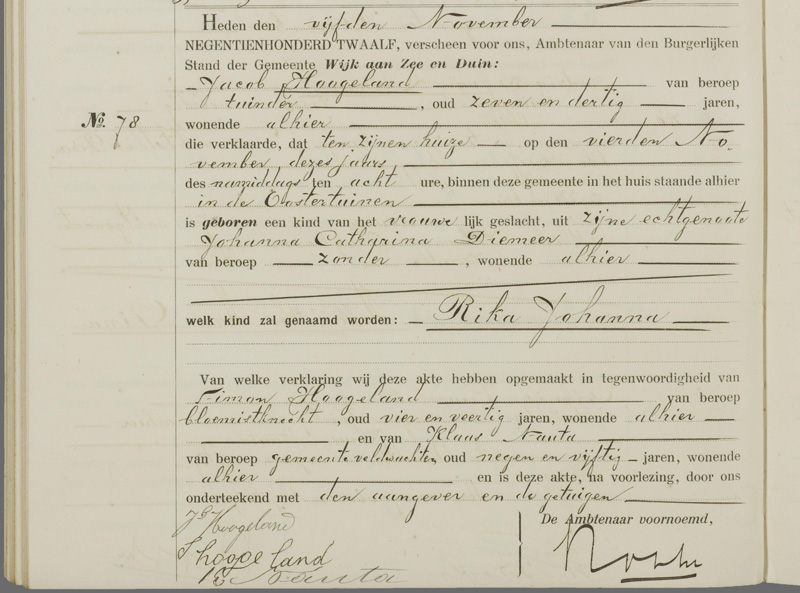 Heden den vijfden November
NEGENTIENHONDERD TWAALF, verscheen voor ons, Ambtenaar van den Burgerlijken
Stand der Gemeente Wijk aan Zee en Duin:
Jacob Hoogeland van beroep
tuinder, oud zeven en dertig jaren,
No. 78
wonende alhier
die verklaarde, dat ten zijnen huize op den vierden No-
vember dezes jaars
des namiddags ten acht ure, binnen deze gemeente in het huis staande alhier
in de Oostertuinen
is geboren een kind van het vrouwelijk geslacht, uit zijne echtgenoote
Johanna Catharina Diemeer
van beroep zonder, wonende alhier
welk kind zal genaamd worden: Rika Johanna
Van welke verklaring wij deze akte hebben opgemaakt in tegenwoordigheid van
Simon Hoogeland van beroep
bloemistknecht, oud vier en veertig jaren, wonende alhier
en van Klaas Nauta
van beroep gemeente veldwachter, oud negen en vijftig jaren, wonende
alhier en is deze akte, na voorlezing, door ons
onderteekend met den aangever en de getuigen
De Ambtenaar voornoemd,
J Hoogeland
S hoogeland
K Nauta